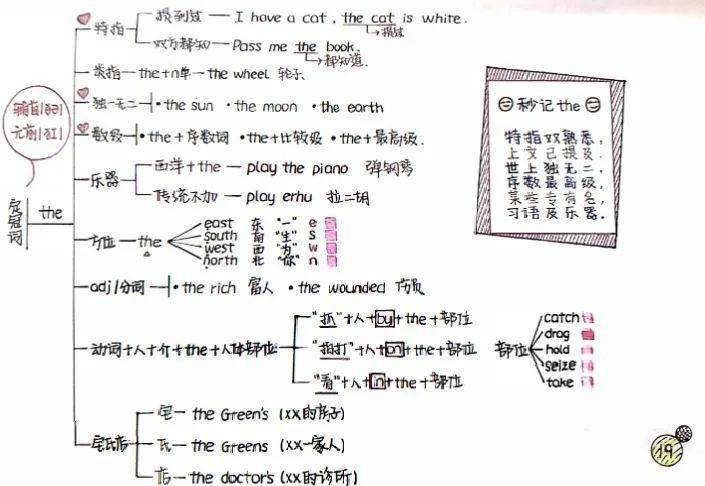 定冠词
the
辅前|ðə|
元前|ðɪ|
特指
提到过 — I have a cat, the cat is white.
提过
双方都知 — Pass me the book.
都知道.
类指 — the+n单 — the wheel 轮子.
独一无二 • the sun • the moon • the earth
数级 • the+序数词 • the+比较级 • the+最高级.
乐器
西洋+the — play the piano 弹钢琴
传统不加 — play erhu 拉二胡
方位 — the
east 东 "一" e
south 南 "生" s
west 西 "为" w
north 北 "你" n
adj/分词 • the rich 富人 • the wounded 伤员
动词+人+介+the+人体部位
"抓"+人+by+the+部位
"拍打"+人+on+the+部位
"看"+人+in+the+部位
部位
catch
drag
hold
seize
take
宅氏店
宅 — the Green's (xx的房子)
氏 — the Greens (xx一家人)
店 — the doctor's (xx的诊所)
秒记 the
特指双熟悉,
上文已提及.
世上独无二,
序数最高级,
某些专有名,
习语及乐器.
19